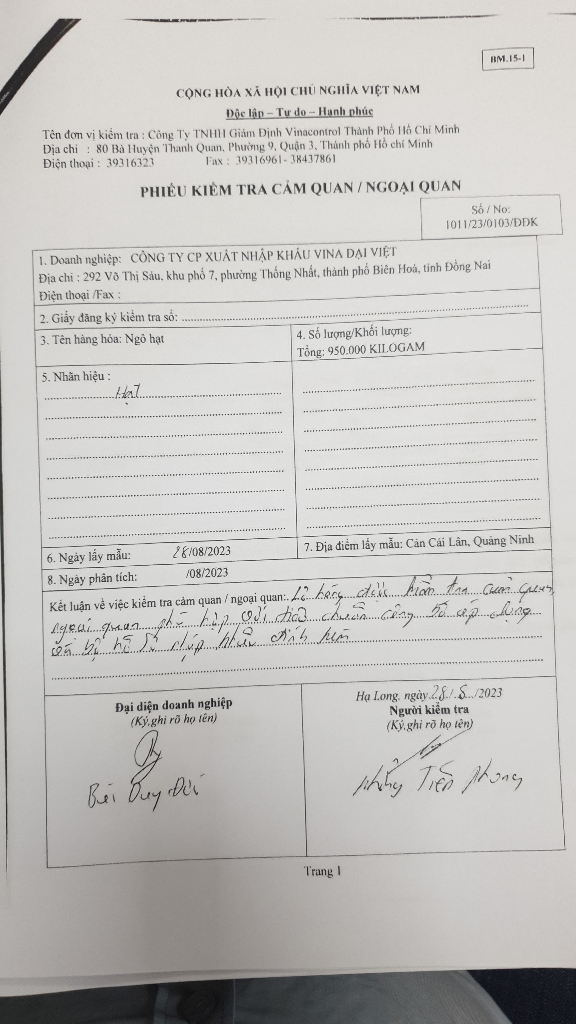 BM.15-1
CỘNG HÒA XÃ HỘI CHỦ NGHĨA VIỆT NAM
Độc lập – Tự do – Hạnh phúc
Tên đơn vị kiểm tra : Công Ty TNHH Giám Định Vinacontrol Thành Phố Hồ Chí Minh
Địa chỉ : 80 Bà Huyện Thanh Quan, Phường 9, Quận 3, Thành phố Hồ chí Minh
Điện thoại : 39316323 Fax : 39316961- 38437861
PHIẾU KIỂM TRA CẢM QUAN / NGOẠI QUAN
Số / No:
1011/23/0103/ĐDK
1. Doanh nghiệp: CÔNG TY CP XUẤT NHẬP KHẨU VINA ĐẠI VIỆT
Địa chỉ : 292 Võ Thị Sáu, khu phố 7, phường Thống Nhất, thành phố Biên Hoà, tỉnh Đồng Nai
Điện thoại /Fax :
2. Giấy đăng ký kiểm tra số:
3. Tên hàng hóa: Ngô hạt
4. Số lượng/Khối lượng:
Tổng: 950.000 KILOGAM
5. Nhãn hiệu :
Hạt
6. Ngày lấy mẫu: 28/08/2023
7. Địa điểm lấy mẫu: Cản Cái Lân, Quảng Ninh
8. Ngày phân tích: /08/2023
Kết luận về việc kiểm tra cảm quan / ngoại quan: Lô hàng được kiểm tra cảm quan,
ngoại quan phù hợp với tiêu chuẩn công bố áp dụng
và bộ hồ sơ nhập khẩu đính kèm
Đại diện doanh nghiệp
(Ký,ghi rõ họ tên)
Bùi Duy
Hạ Long, ngày 28/.8../2023
Người kiểm tra
(Ký,ghi rõ họ tên)
Tiến Phong
Trang 1